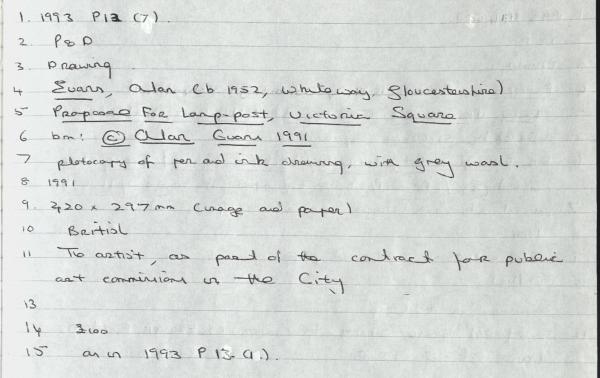 1. 1993 P13 (7).
2. P&D
3. Drawing.
4 Evans, Alan (b 1952, Whiteway, Gloucestershire)
5 Proposal For Lamp-post, Victoria Square
6 bm: © Alan Evans 1991
7 photocopy of pen and ink drawing, with grey wash.
8 1991
9. 420 x 297mm (image and paper)
10 British
11 The artist, as part of the contract for public
art commissions in the City
13
14 £100
15 as in 1993 P 13 (1.).